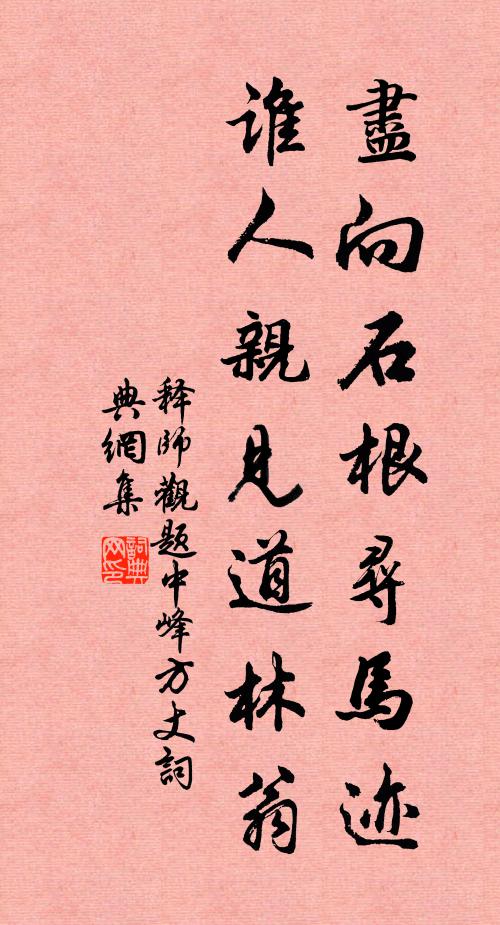 盡向石根尋馬迹
誰人親見道林翁
释師觀題中峰方丈詞
典網集
詞典
网印